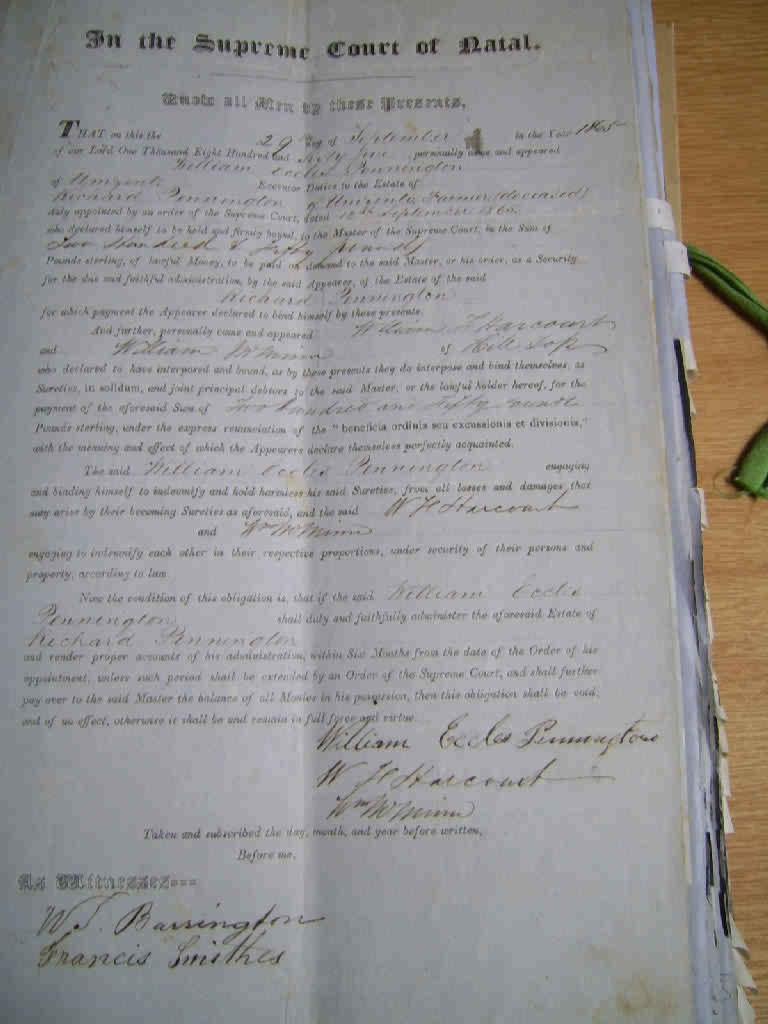 In the Supreme Court of Natal.
Know all Men by these Presents,
THAT on this the 29th day of September in the Year 1865
of our Lord One Thousand Eight Hundred and Sixty five personally came and appeared
William Eccles Pennington
of Umzinto Executor Dative to the Estate of
Richard Pennington of Umzinto, Farmer (deceased)
duly appointed by an order of the Supreme Court, dated 12th September 1865
who declared himself to be held and firmly bound, to the Master of the Supreme Court, in the Sum of
Two Hundred & Fifty pounds
Pounds sterling, of lawful Money, to be paid on demand to the said Master, or his order, as a Security
for the due and faithful administration, by the said Appearer, of the Estate of the said
Richard Pennington
for which payment the Appearer declared to bind himself by these presents.
And further, personally came and appeared William H Harcourt
and William McMinn of Hill Top
who declared to have interposed and bound, as by these presents they do interpose and bind themselves, as
Sureties, in solidum, and joint principal debtors to the said Master, or the lawful holder hereof, for the
payment of the aforesaid Sum of Two hundred and Fifty Pounds
Pounds sterling, under the express renunciation of the "beneficia ordinis seu excussionis et divisionis,"
with the meaning and effect of which the Appearers declare themselves perfectly acquainted.
The said William Eccles Pennington engaging
and binding himself to indemnify and hold harmless his said Sureties, from all losses and damages that
may arise by their becoming Sureties as aforesaid, and the said W H Harcourt
and Wm McMinn
engaging to indemnify each other in their respective proportions, under security of their persons and
property, according to law.
Now the condition of this obligation is, that if the said William Eccles
Pennington shall duly and faithfully administer the aforesaid Estate of
Richard Pennington
and render proper accounts of his administration, within Six Months from the date of the Order of his
appointment, unless such period shall be extended by an Order of the Supreme Court, and shall further
pay over to the said Master the balance of all Monies in his possession, then this obligation shall be void,
and of no effect, otherwise it shall be and remain in full force and virtue.
William Eccles Pennington
W H Harcourt
Wm McMinn
Taken and subscribed the day, month, and year before written,
Before me,
As Witnesses---
W. J. Barrington
Francis Smithes